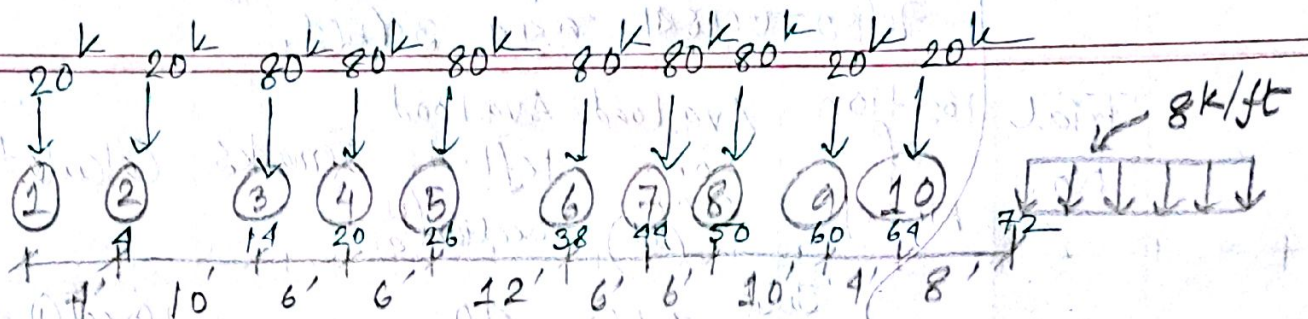 20k 20k 80k 80k 80k 80k 80k 80k 20k 20k
8k/ft
1 2 3 4 5 6 7 8 9 10
4 14 20 26 38 44 50 60 64 72
4' 10' 6' 6' 12' 6' 6' 10' 4' 8'